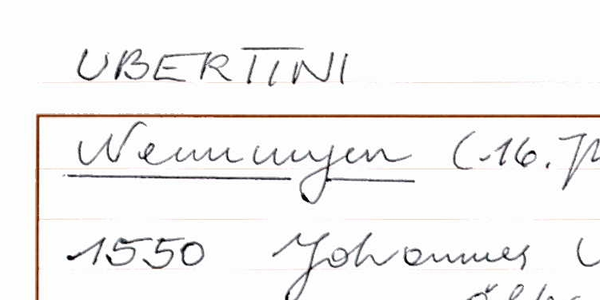 UBERTINI
Nenningen (16. J
1550 Johannes U